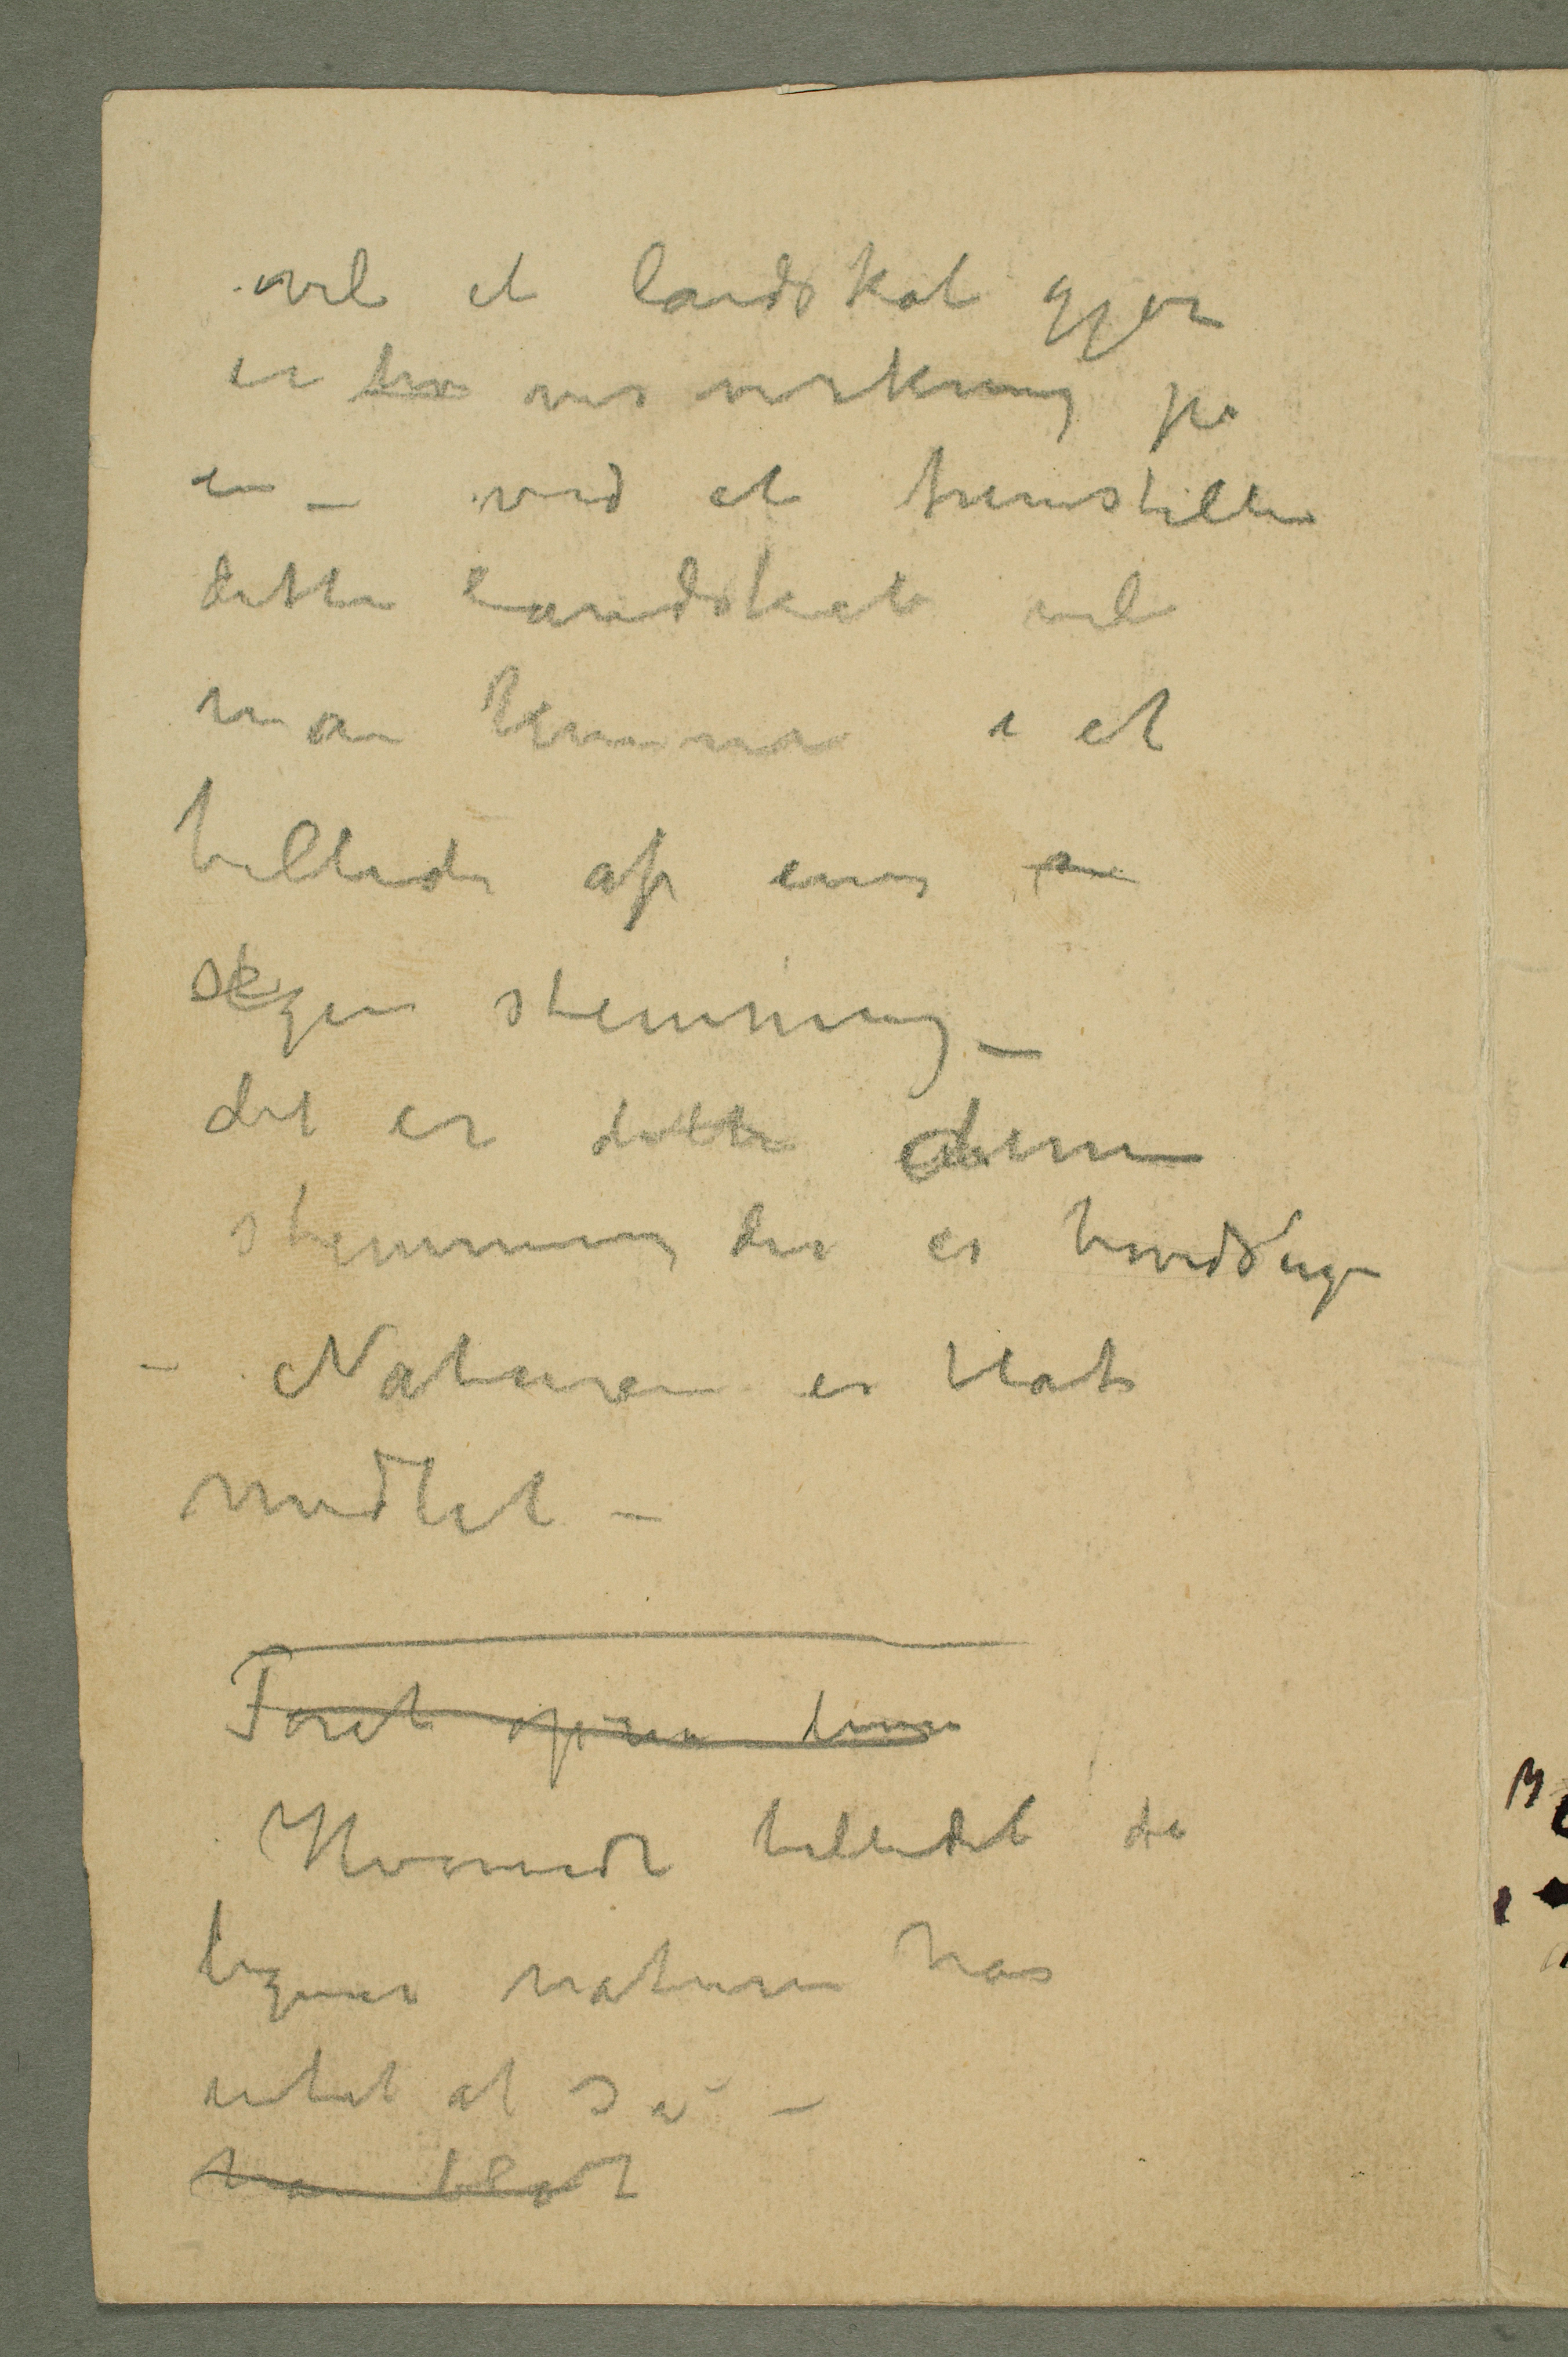 vil et landskab gjøre
en vis virkning på
en – ved at fremstille
dette landskab vil
man komme i et
billede af ens
egen stemning –
det er dette denne
stemning der er hovedsagen
– Naturen er blot
midlet –
Hvorvidt billedet da
ligner naturen har
intet at si –
han blot